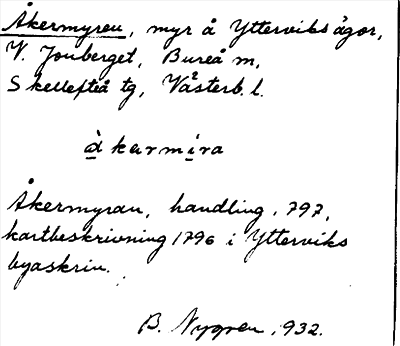 Åkermyren, myr å Ytterviks ägor,
V. Jonberget, Bureå m,
Skellefteå tg, Västerb. l.
àkærmira
Åkermyran, handling 1797,
kartbeskrivning 1796 i Ytterviks
byaskrin.
B. Nygren, 1932.